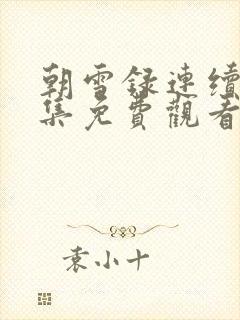 朝雪録連續
集免費觀看
袁小十